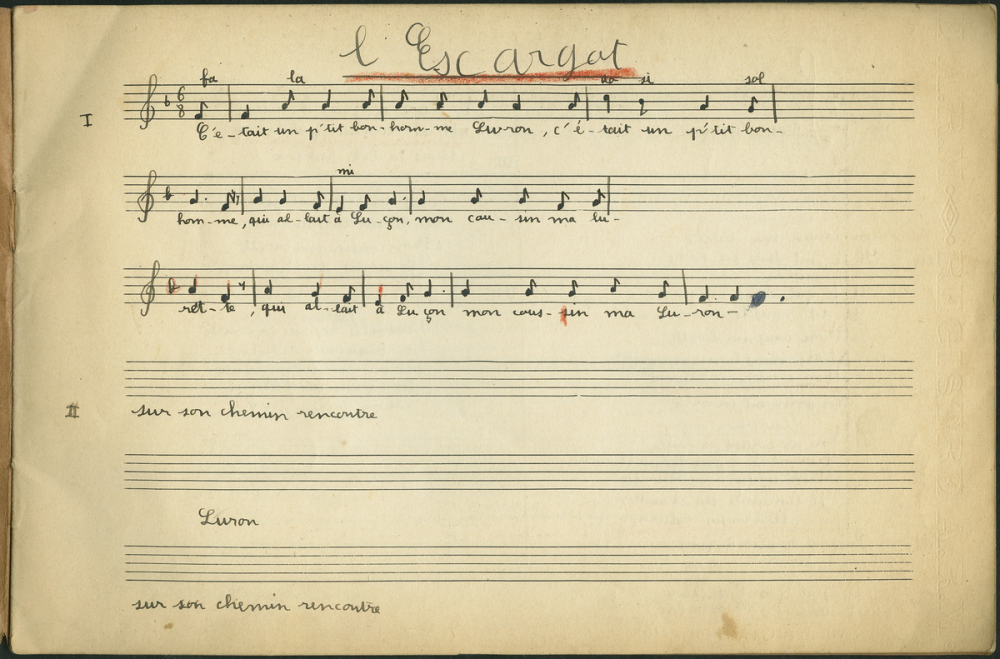 l'Escargot
fa la do si sol
I
C'é-tait un p'tit bon-hom-me Luron, c'é-tait un p'tit bon-
mi
hom-me, qui al-lait à Lu-çon, mon cou-sin ma lu-
ret-te, qui al-lait à Lu çon mon cous-sin ma Lu-ron-
II sur son chemin rencontre
Luron
sur son chemin rencontre